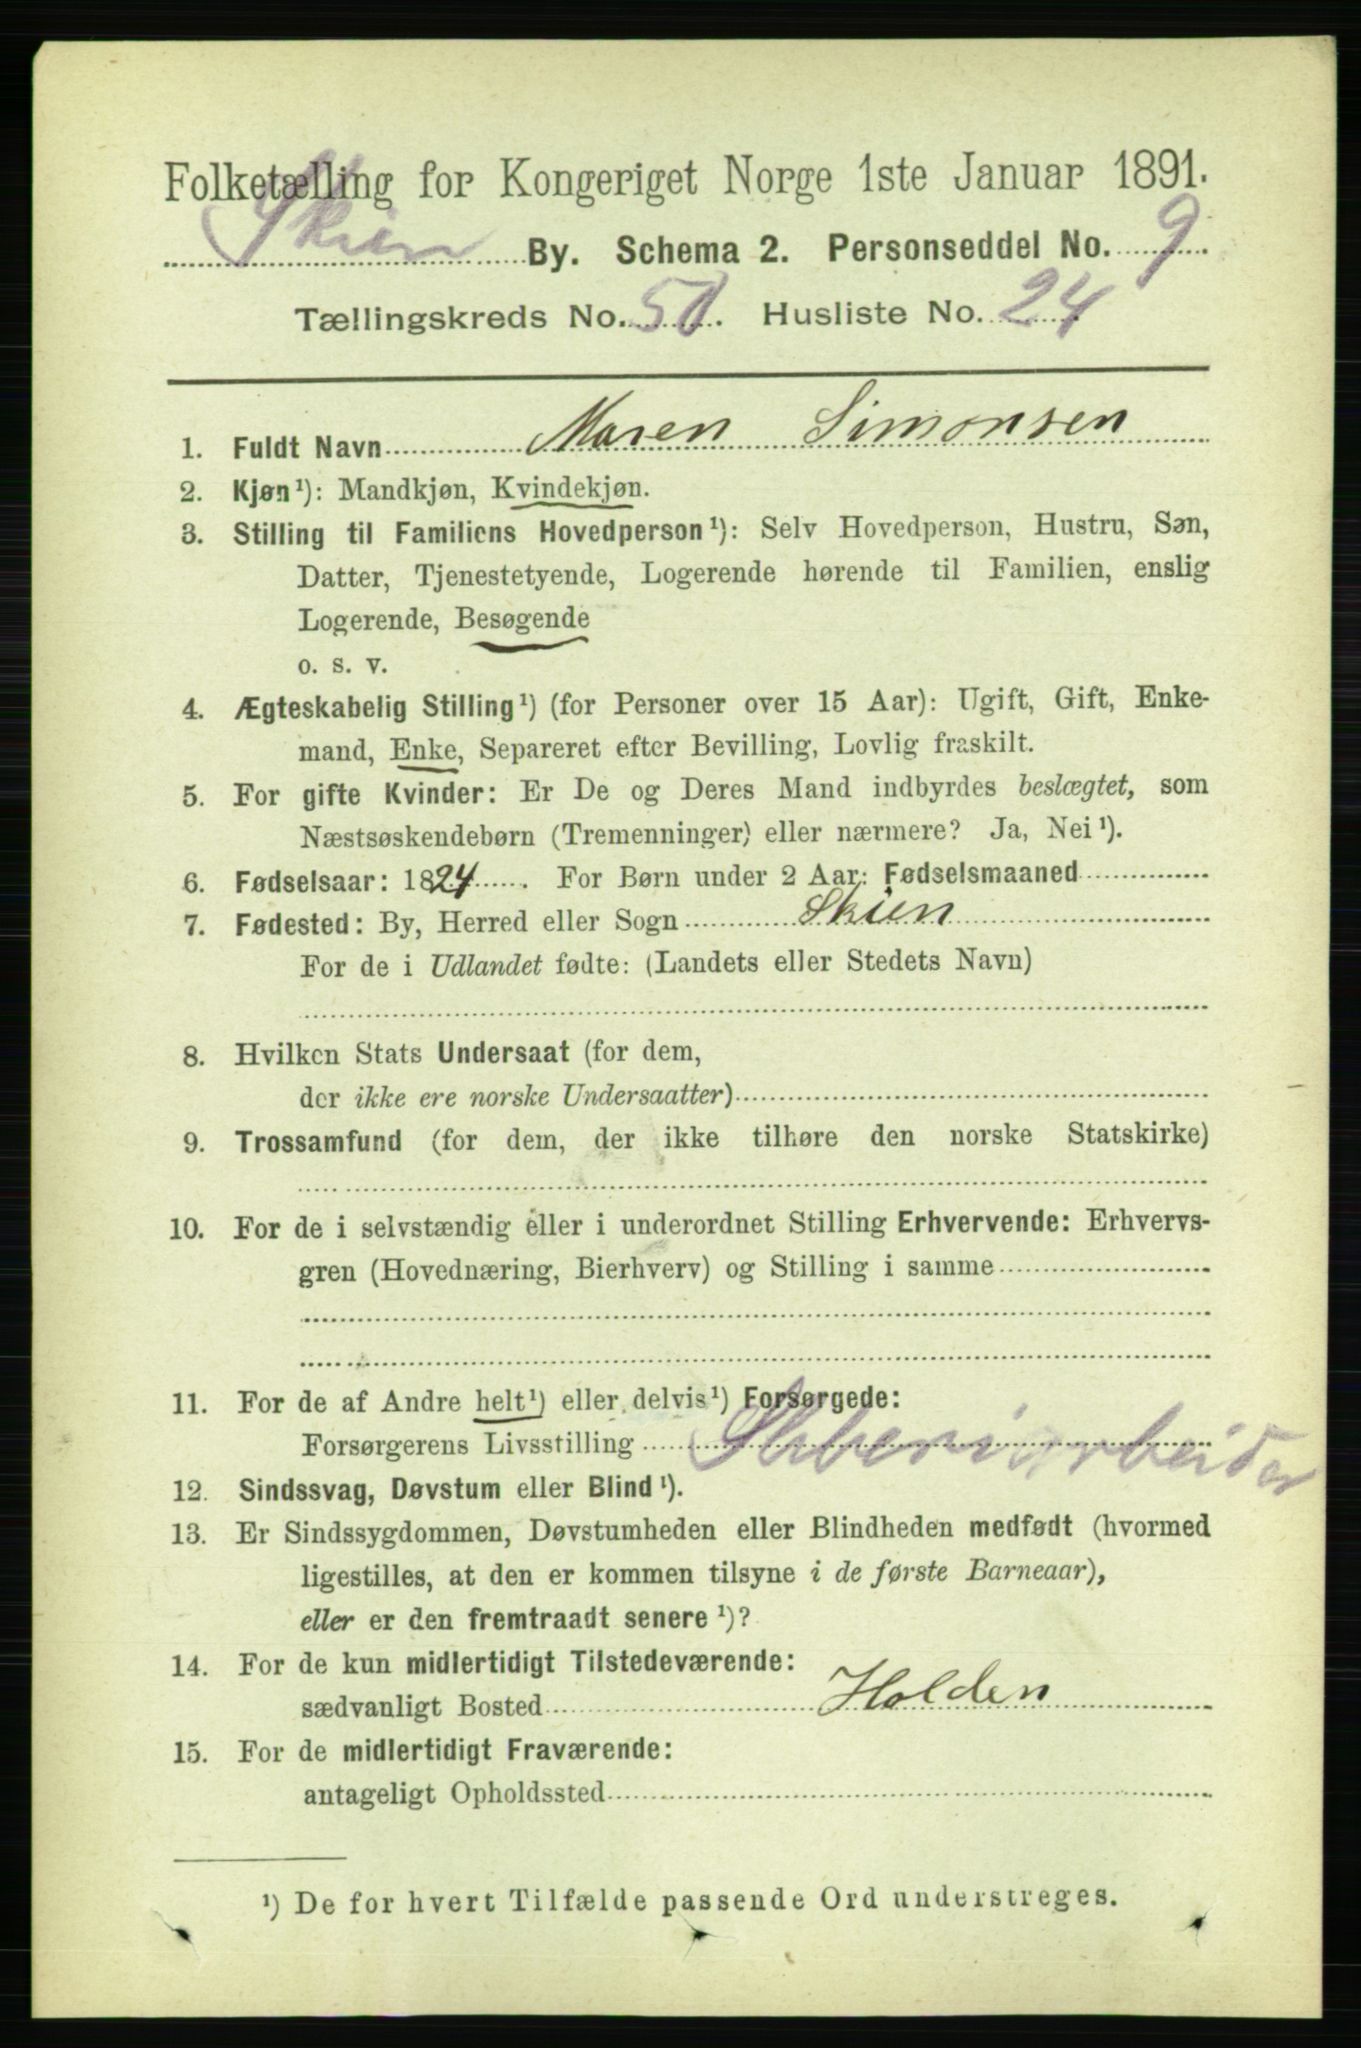 Folketælling for Kongeriget Norge 1ste Januar 1891.
Skien By. Schema 2. Personseddel No. 9.
Tællingskreds No. 51. Husliste No. 24.
1. Fuldt Navn Maren Simonsen
2. Kjøn¹): Mandkjøn, Kvindekjøn.
3. Stilling til Familiens Hovedperson¹): Selv Hovedperson, Hustru, Søn,
Datter, Tjenestetyende, Logerende hørende til Familien, enslig
Logerende, Besøgende
o. s. v.
4. Ægteskabelig Stilling¹) (for Personer over 15 Aar): Ugift, Gift, Enke-
mand, Enke, Separeret efter Bevilling, Lovlig fraskilt.
5. For gifte Kvinder: Er De og Deres Mand indbyrdes beslægtet, som
Næstsøskendebørn (Tremenninger) eller nærmere? Ja, Nei¹).
6. Fødselsaar: 1824. For Børn under 2 Aar: Fødselsmaaned
7. Fødested: By, Herred eller Sogn Skien
For de i Udlandet fødte: (Landets eller Stedets Navn)
8. Hvilken Stats Undersaat (for dem,
der ikke ere norske Undersaatter)
9. Trossamfund (for dem, der ikke tilhøre den norske Statskirke)
10. For de i selvstændig eller i underordnet Stilling Erhvervende: Erhvervs-
gren (Hovednæring, Bierhverv) og Stilling i samme
11. For de af Andre helt¹) eller delvis¹) Forsørgede:
Forsørgerens Livsstilling Sliberiarbeider
12. Sindssvag, Døvstum eller Blind¹).
13. Er Sindssygdommen, Døvstumheden eller Blindheden medfødt (hvormed
ligestilles, at den er kommen tilsyne i de første Barneaar),
eller er den fremtraadt senere¹)?
14. For de kun midlertidigt Tilstedeværende:
sædvanligt Bosted Holden
15. For de midlertidigt Fraværende:
antageligt Opholdssted
¹) De for hvert Tilfælde passende Ord understreges.